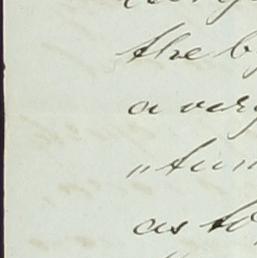 the b
a very
"tun
as to